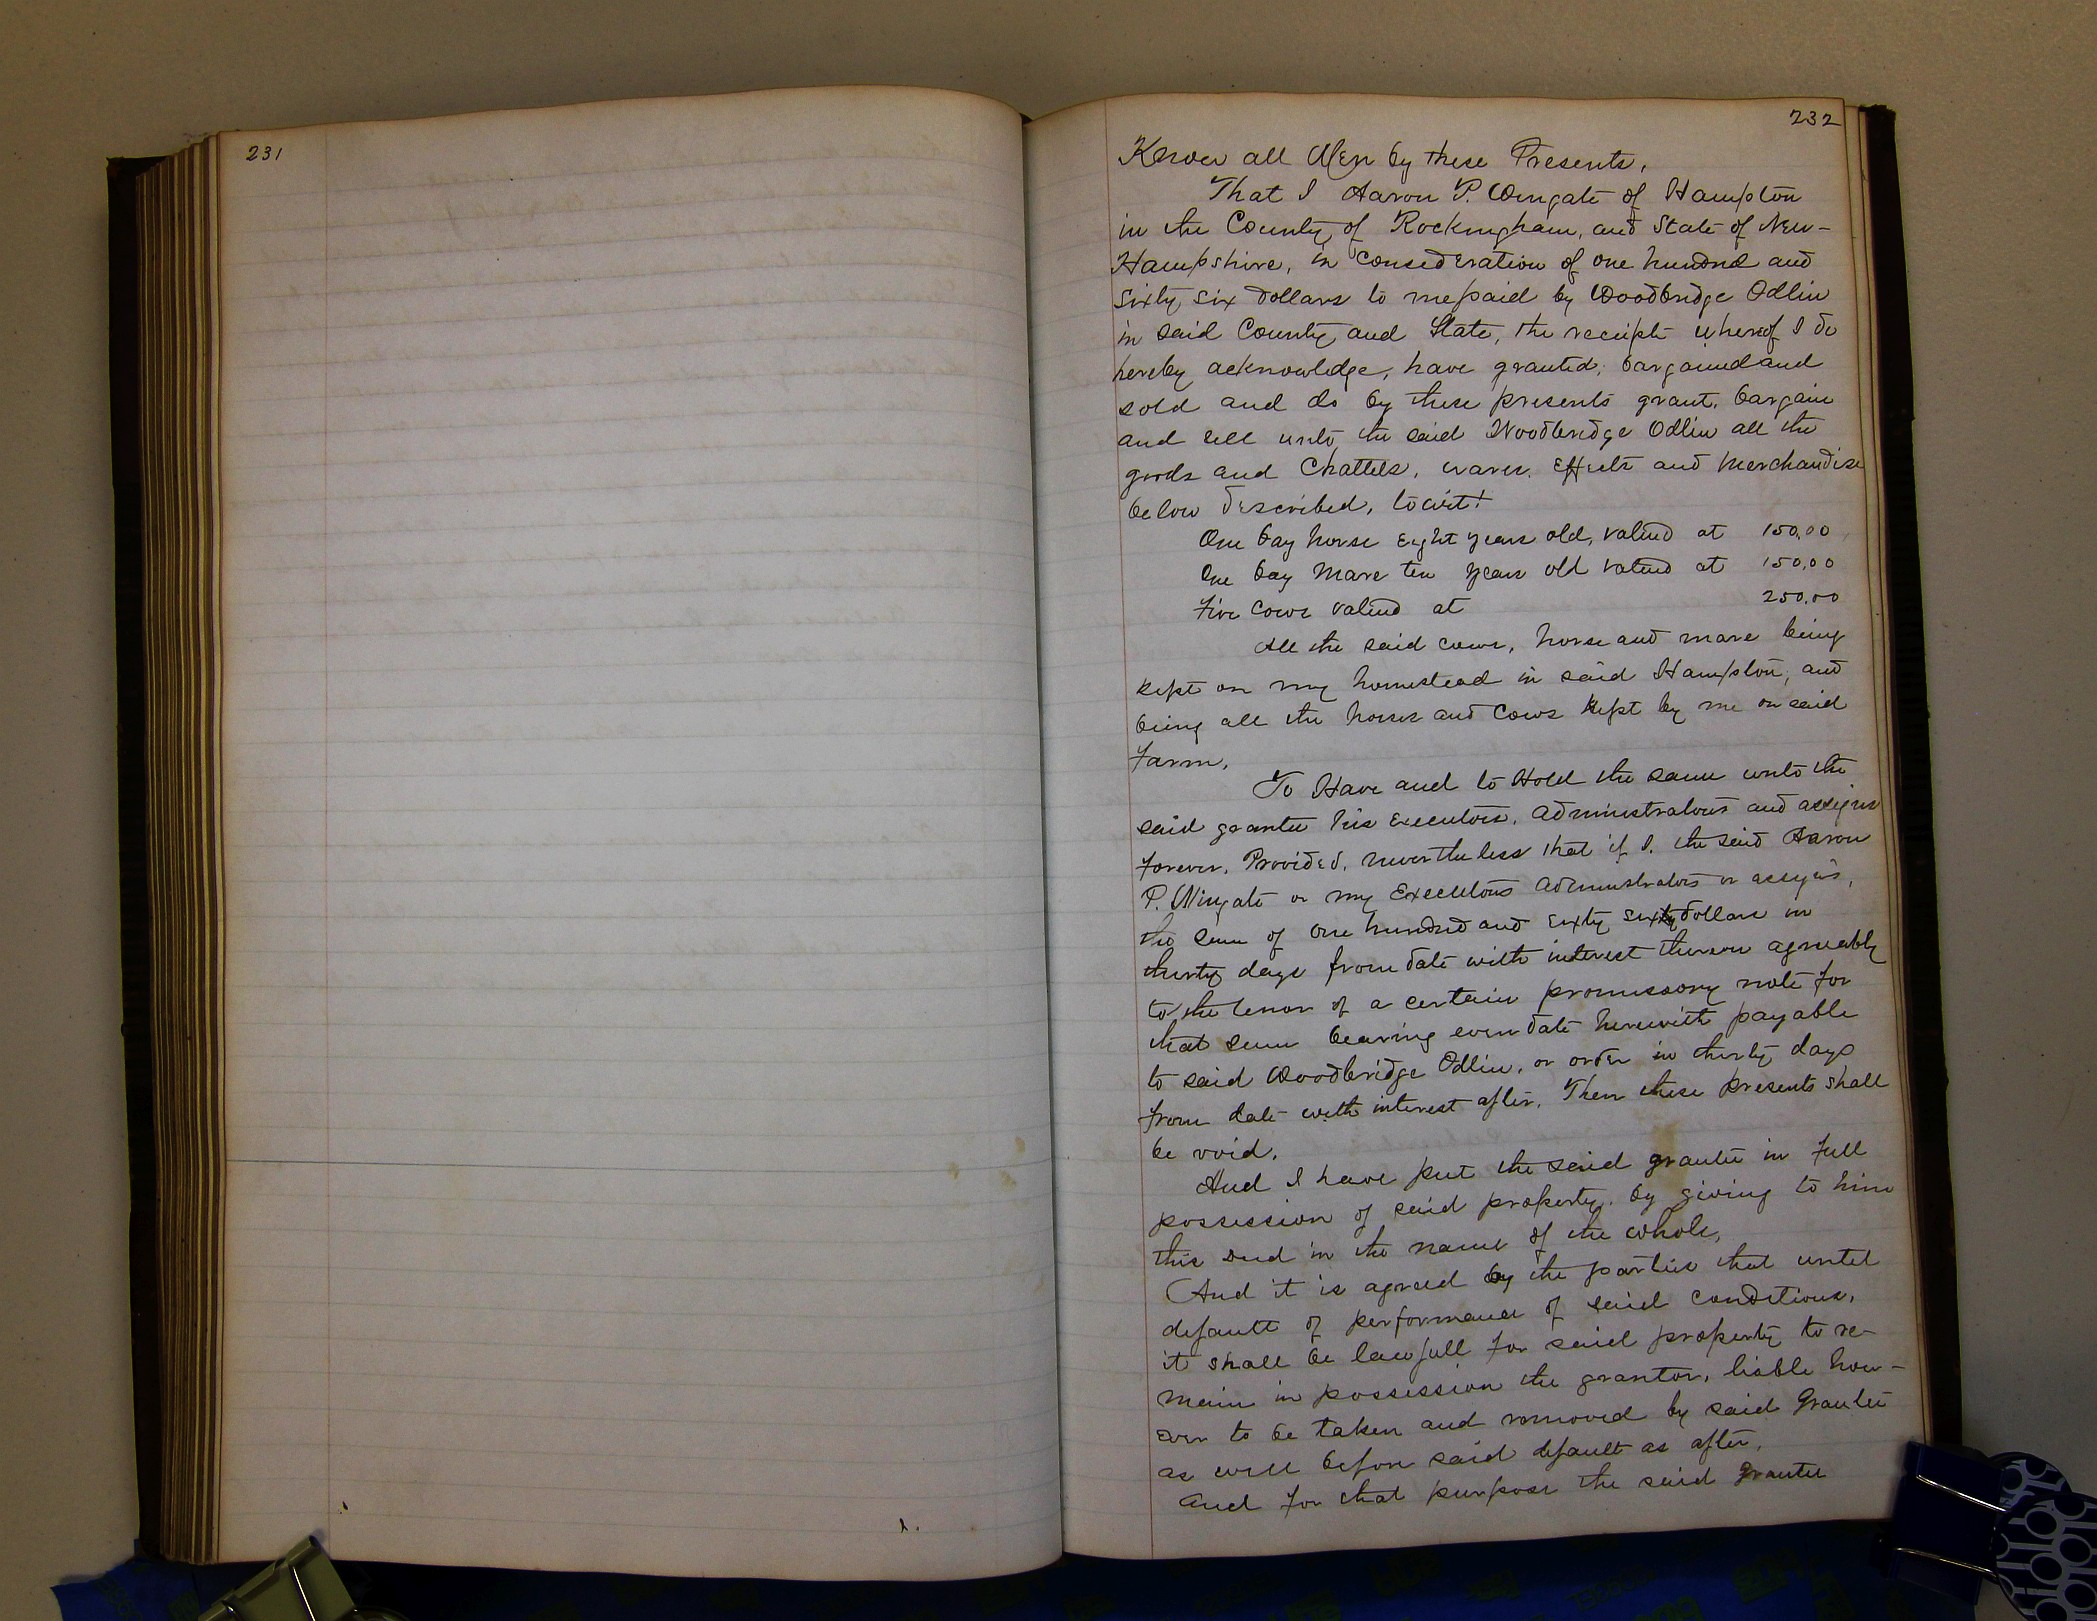 231
232
Know all Men by these Presents,
That I Aaron P. Wingate of Hampton
in the County of Rockingham, and State of New-
Hampshire, in consideration of one hundred and
sixty six dollars to me paid by Woodbridge Odlin
in said County and State, the receipt whereof I do
hereby acknowledge, have granted, bargained and
sold and do by these presents grant, bargain
and sell unto the said Woodbridge Odlin all the
goods and Chattels, wares, Effects and Merchandise
below described, to wit!
One bay horse eight years old, valued at 150,00
One bay mare ten years old valued at 150,00
Five cows valued at 250,00
All the said cows, horse and mare being
kept on my homestead in said Hampton, and
being all the horses and cows kept by me on said
Farm,
To Have and to Hold the same unto the
said grantee his executors, administrators and assigns
forever, Provided, nevertheless that if I, the said Aaron
P. Wingate or my Executors administrators or assigns,
the sum of one hundred and sixty six dollars in
thirty days from date with interest thereon agreeably
to the tenor of a certain promissory note for
that sum bearing even date herewith payable
to said Woodbridge Odlin, or order in thirty days
from date with interest after, Then these presents shall
be void,
And I have put the said grantee in full
possession of said property, by giving to him
this deed in the name of the whole,
And it is agreed by the parties that until
default of performance of said conditions,
it shall be lawfull for said property to re-
main in possession the grantor, liable how-
ever to be taken and removed by said Grantee
as well before said default as after,
and for that purpose the said Grantee